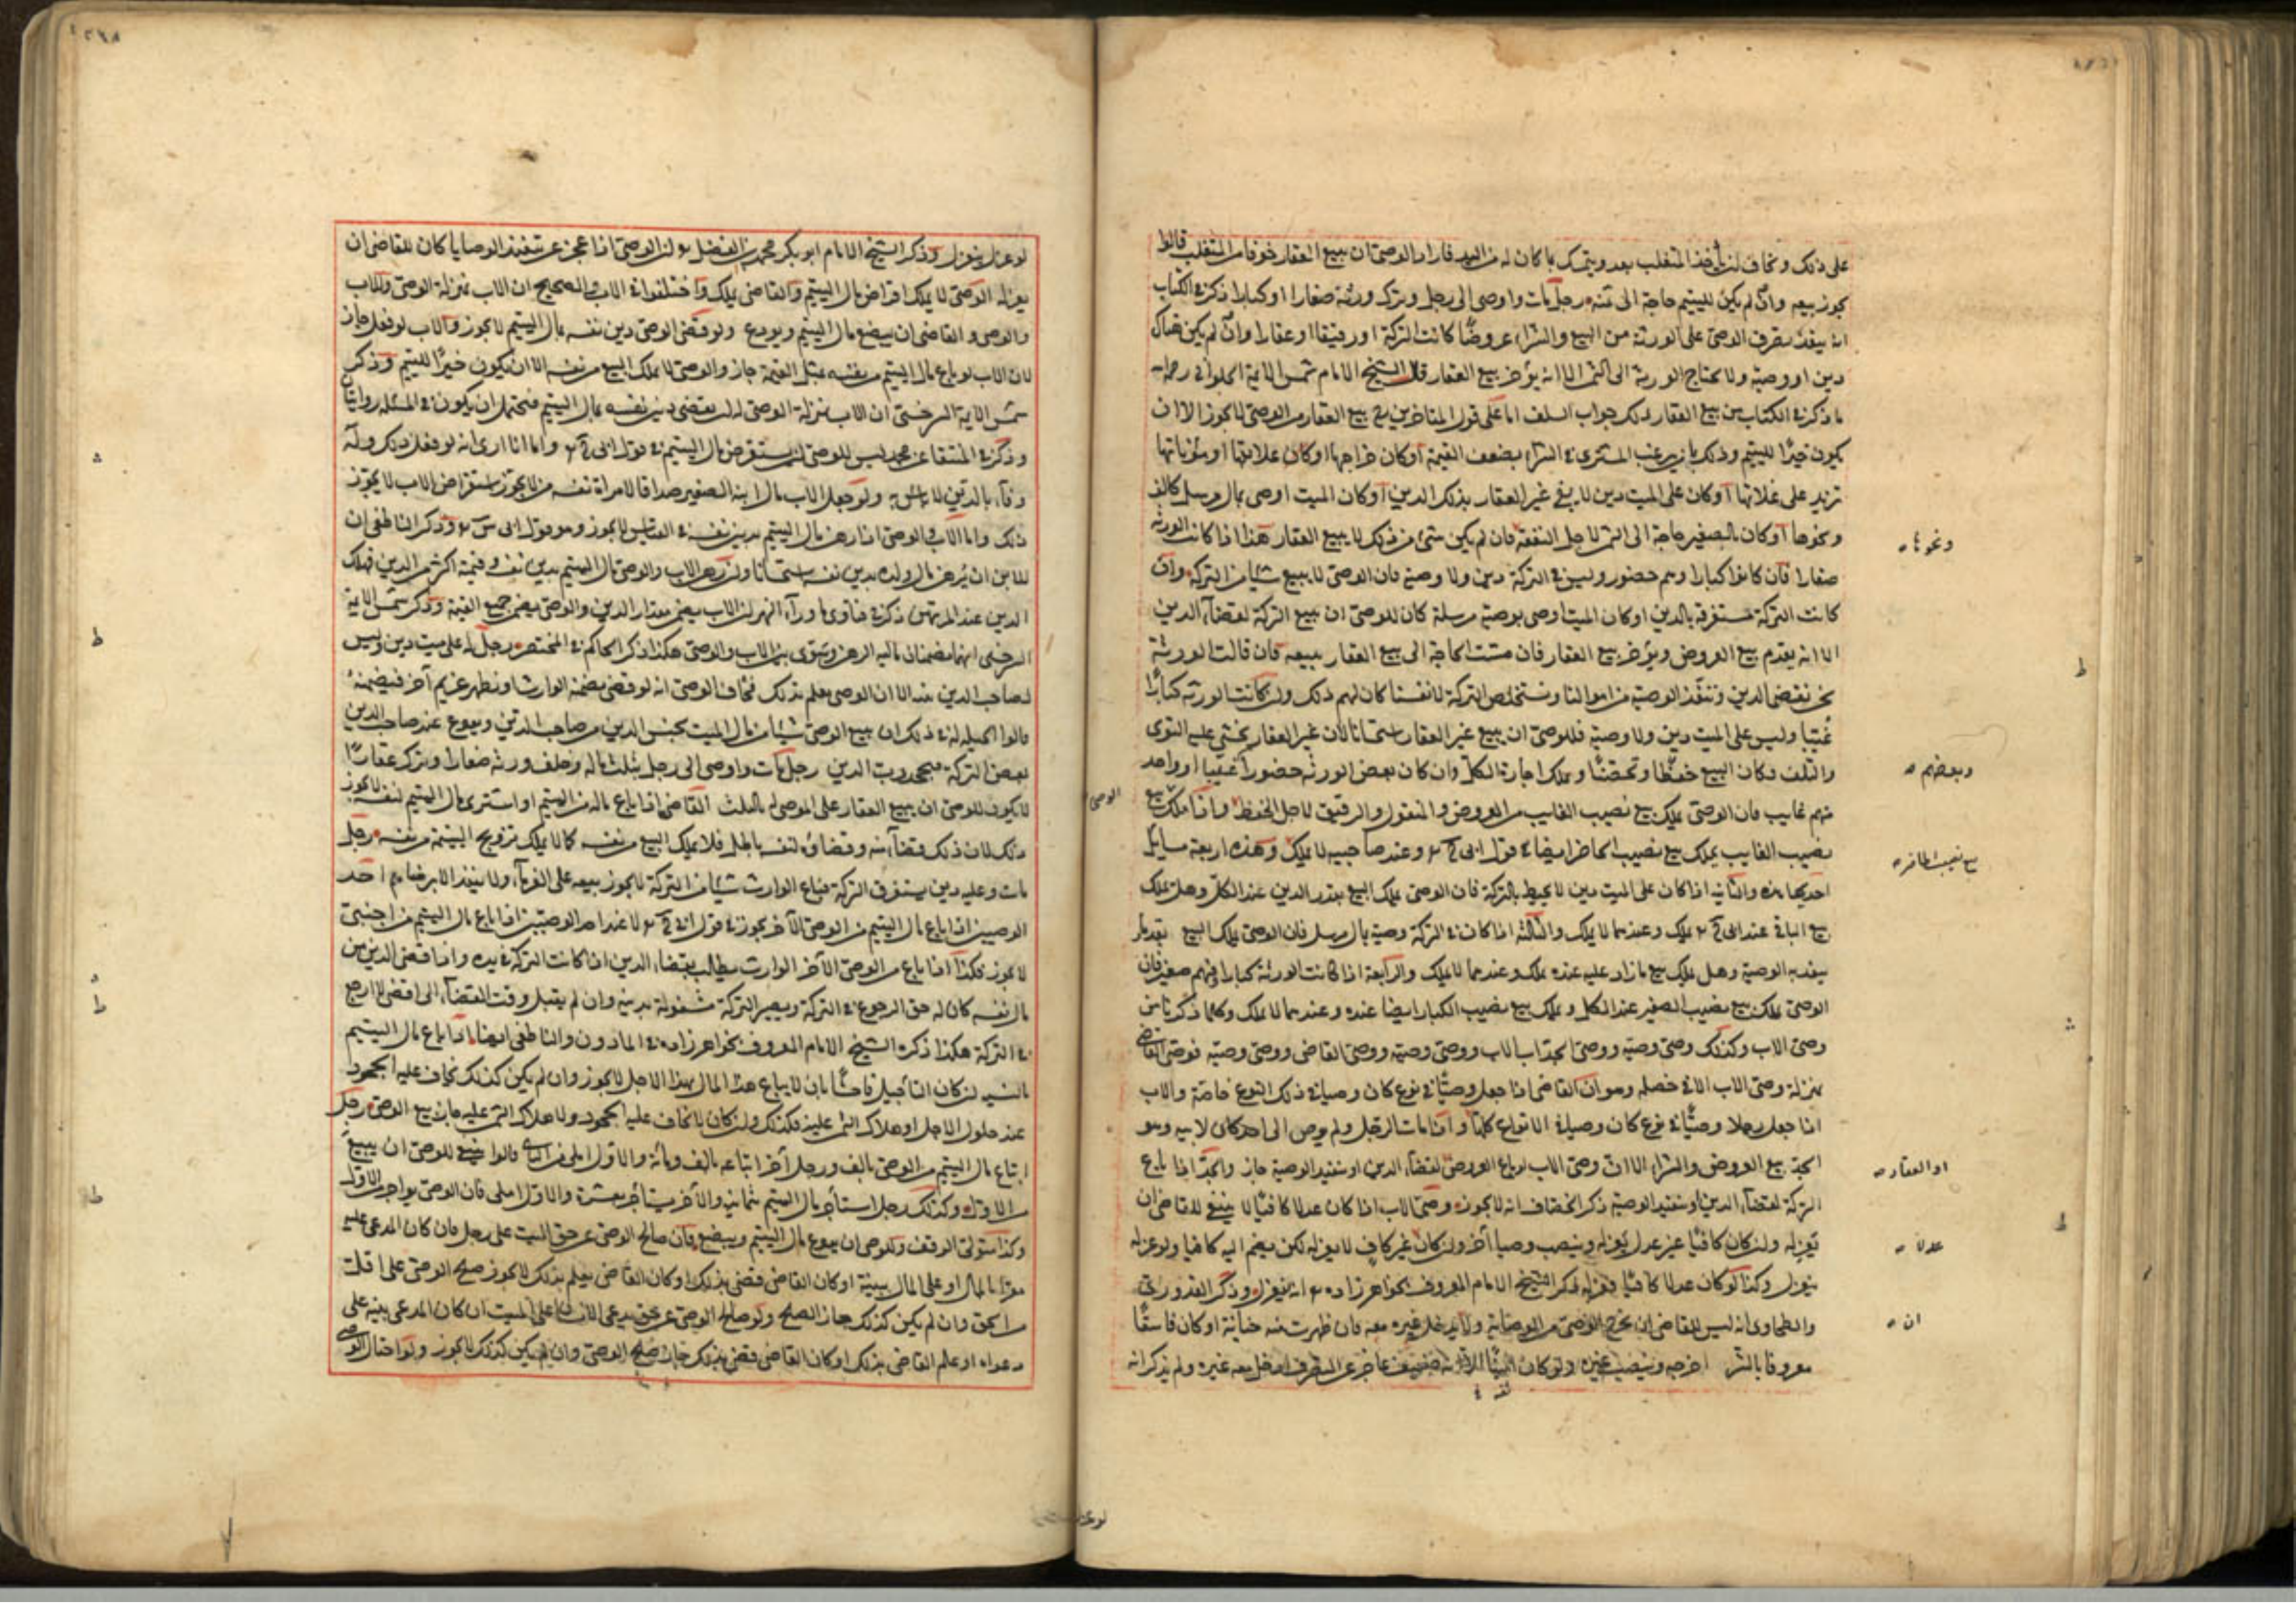 على ذلك ويخاف ان يأخذ المتغلب بعد ويتمسك بما كان له من اليد فاراد الوصى ان يبيع العقار خوفا من المتغلب قالوا
يجوز بيعه وان لم يكن لليتيم حاجة الى ثمنه رجل مات واوصى الى رجل وترك ورثة صغارا او كبارا ذكر فى الكتاب
انه ينفذ تصرف الوصى على الورثة من البيع والشراء عروضا كانت التركة او رقيقا او عقارا وان لم يكن هناك
دين او وصية ولا يحتاج الورثة الى الثمن الا انه يؤخر بيع العقار قال الشيخ الامام شمس الايمة الحلوانى رحمه
ما ذكر فى الكتاب من بيع العقار ذلك جواب السلف اما على قول المتاخرين بيع العقار من الوصى لا يجوز الا ان
يكون خيرا لليتيم وذلك بان يرغب المشترى فى الشراء بضعف القيمة او كان خراجها او كان علاتها او مؤناتها
تزيد على غلاتها او كان على الميت دين لا يفى غير العقار بذلك الدين او كان الميت اوصى بمال مرسل كالف
ونحوها او كان بالصغير حاجة الى الثمن لاجل النفقة فان لم يكن شئ من ذلك لا يبيع العقار هذا اذا كانت الورثة
صغارا فان كانوا كبارا وهم حضور وليس فى التركة دين ولا وصية فان الوصى لا يبيع شيأ من التركة وان
كانت التركة مستغرقة بالدين او كان الميت اوصى بوصية مرسلة كان للوصى ان يبيع التركة لقضاء الدين
الا انه يقدم بيع العروض ويؤخر بيع العقار فان مست الحاجة الى بيع العقار يبيعه فان قالت الورثة
نحن نقضى الدين وننفذ الوصية من اموالنا ونستخلص التركة لانفسنا كان لهم ذلك وان كانت الورثة كبارا
غيبا وليس على الميت دين ولا وصية فللوصى ان يبيع غير العقار استحسانا لان غير العقار يخشى عليه التوى
والتلف فكان البيع حفظا وتحصينا ويملك اجارة الكل وان كان بعض الورثة حضورا وغيبا او واحد
منهم غايب فان الوصى يملك بيع نصيب الغايب من العروض والمنقول والرقيق لاجل الحفظ واذا ملك بيع
نصيب الغايب يملك بيع نصيب الحاضر ايضا فى قول ابى ح وعند صاحبيه لا يملك وهذه اربعة مسايل
احديها هذه والثانية اذا كان على الميت دين لا يحيط بالتركة فان الوصى يملك البيع بقدر الدين عند الكل وهل يملك
بيع الباقى عند ابى ح يملك وعندهما لا يملك والثالثة اذا كان فى التركة وصية بمال مرسل فان الوصى يملك البيع بقدر ما
ينفذ به الوصية وهل يملك بيع ما زاد عليه عنده يملك وعندهما لا يملك والرابعة اذا كانت الورثة كبارا فيهم صغير فان
الوصى يملك بيع نصيب الصغير عند الكل ويملك بيع نصيب الكبار ايضا عنده وعندهما لا يملك وكلما ذكرنا من
وصى الاب وكذلك وصى وصيه ووصى الجد اب الاب ووصى وصيه ووصى القاضى ووصى وصيه فوصى القاضى
بمنزلة وصى الاب الا فى خصلة وهو ان القاضى اذا جعل وصيا فى نوع كان وصيا فى ذلك النوع خاصة والاب
اذا جعل رجلا وصيا فى نوع كان وصيا فى الانواع كلها واذا مات الرجل ولم يوص الى احد كان لابيه وهو
الجد بيع العروض والشراء الا ان وصى الاب لو باع العروض لقضاء الدين او تنفيذ الوصية جاز والجد اذا باع
التركة لقضاء الدين او تنفيذ الوصية ذكر الخصاف انه لا يجوز وصى الاب اذا كان عدلا كافيا لا ينبغى للقاضى ان
يعزله وان كان كافيا غير عدل يعزله وينصب وصيا آخر وان كان غير كاف لا يعزله لكن يضم اليه كافيا ولو عزله
ينعزل وكذا لو كان عدلا كافيا فعزله ذكر الشيخ الامام المعروف بخواهر زاده انه ينعزل وذكر القدورى
والطحاوى انه ليس للقاضى ان يخرج الوصى من الوصاية ولا يدخل غيره معه فان ظهرت منه خيانة او كان فاسقا
معروفا بالشر اخرجه وينصب غيره ولو كان ثقة الا انه ضعيف عاجز عن التصرف ادخل معه غيره ولم يذكر انه
ونحوها
وبعضهم
بيع نصيب الحاضر
او العقار
عدلا
ان
ثقة
الوصى
لو عزله
لو عزل ينعزل وذكر الشيخ الامام ابو بكر محمد بن الفضل ان الوصى اذا عجز عن تنفيذ الوصايا كان للقاضى ان
يعزله الوصى لا يملك اقراض مال اليتيم والقاضى يملك واختلفوا فى الاب والصحيح ان الاب بمنزلة الوصى وللاب
والوصى والقاضى ان يبضع مال اليتيم ويودع ولو قضى الوصى دين نفسه بمال اليتيم لا يجوز والاب لو فعل جاز
لان الاب لو باع مال اليتيم من نفسه بمثل القيمة جاز والوصى لا يملك البيع من نفسه الا ان يكون خيرا لليتيم وذكر
شمس الايمة السرخسى ان الاب بمنزلة الوصى ليس له ان يقضى دين نفسه بمال اليتيم فيحتمل ان يكون فى المسئلة روايتان
وذكر فى المنتقا عن محمد ليس للوصى ان يستقرض مال اليتيم فى قول ابى ح واما انا ارى انه لو فعل ذلك وله
وفاء بالدين لا باس به ولو جعل الاب مال ابنه الصغير صداقا لامراة نفسه من لا يجوز استقراض الاب لا يجوز
ذلك واما الاب والوصى اذا رهن مال اليتيم بدين نفسه فى القياس لا يجوز وهو قول ابى س وذكر الناطفى ان
للاب ان يرهن مال ولده بدين نفسه استحسانا ولو رهن الاب والوصى مال اليتيم بدين نفسه وقيمته اكثر من الدين فهلك
الدين عند المرتهن ذكر فى فتاوى ما وراء النهر ان الاب يضمن مقدار الدين والوصى يضمن جميع القيمة وذكر شمس الايمة
السرخسى انهما يضمنان مالية الرهن وسوى بين الاب والوصى هكذا ذكر الحاكم فى المختصر رجل له على ميت دين وليس
لصاحب الدين بينة الا ان الوصى يعلم بذلك فخاف الوصى انه لو قضى يضمنه الوارث او يظهر غريم آخر فيضمنه
قالوا الحيلة له فى ذلك ان يبيع الوصى شيأ من مال الميت بجنس الدين من صاحب الدين ويودع عند صاحب الدين
بعض التركة فيجحد رب الدين رجل مات واوصى الى رجل بثلث ماله وخلف ورثة صغارا وترك عقارا
لا يكون للوصى ان يبيع العقار على الموصى له بالثلث القاضى اذا باع ماله من اليتيم او اشترى مال اليتيم لنفسه لا يجوز
ذلك لان ذلك قضاء منه وقضاؤه لنفسه باطل فلا يملك البيع من نفسه كما لا يملك تزويج اليتيمة من نفسه رجل
مات وعليه دين يستغرق التركة فباع الوارث شيأ من التركة لا يجوز بيعه على الغرماء ولا ينفذ الا برضاهم احد
الوصيين اذا باع مال اليتيم من الوصى الآخر يجوز فى قول ابى ح لا عند احد الوصيين اذا باع مال اليتيم من اجنبى
لا يجوز فكذا اذا باع من الوصى الآخر الوارث يطالب بقضاء الدين اذا كانت التركة فى يده واذا قضى الدين من
مال نفسه كان له حق الرجوع فى التركة ويصير التركة مشغولة بدينه وان لم يقبل وقت القضاء الى اقضى لارجع
فى التركة هكذا ذكره الشيخ الامام المعروف بخواهر زاده فى الماذون والناطفى ايضا اذا باع مال اليتيم
بالنسية ان كان التأجيل فاحشا بان لا يباع هذا المال بهذا الاجل لا يجوز وان لم يكن كذلك يخاف عليه الجحود
عند حلول الاجل او هلاك الثمن عليه فكذلك وان كان لا يخاف عليه الجحود ولا هلاك الثمن عليه جاز بيع الوصى رجل
ابتاع مال اليتيم من الوصى بالف ورجل آخر ابتاعه بالف ومائة والاول املى من الثانى قالوا ينبغى للوصى ان يبيع
من الاول وكذلك رجل استأجر مال اليتيم بثمانية والآخر يستأجر بعشرة والاول املى فان الوصى يواجر الاول
وكذا متولى الوقف وللوصى ان يودع مال اليتيم ويبضع فان صالح الوصى عن حق الميت على رجل فان كان المدعى عليه
مقرا بالمال او على المال بينة او كان القاضى قضى بذلك او كان القاضى يعلم بذلك لا يجوز صلح الوصى على اقل
من الحق وان لم يكن كذلك جاز الصلح ولو صالح الوصى عن حق يدعى الانسان على الميت ان كان المدعى بينة على
دعواه او علم القاضى بذلك او كان القاضى قضى بذلك جاز صلح الوصى وان لم يكن كذلك لا يجوز ولو احتال الوصى